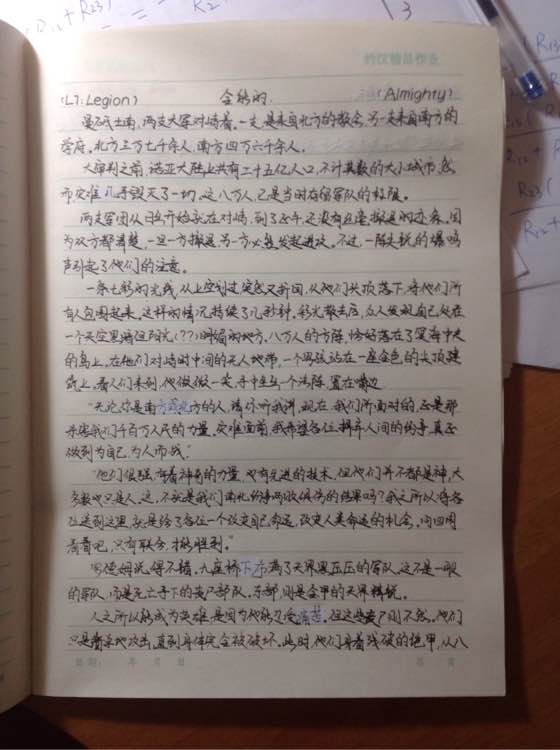 R12 + R23)
R23
竹汉精品作业
(L7: Legion) 全能的 (Almighty)
漫砾土南,两支大军对峙着。一支是来自北方的教会,另一支来自南方的
学府,北方三万七千余人,南方四万六千余人。
大审判之前,诺亚大陆上共有二十五亿人口,不计其数的大小城市,然
而灾难几乎毁灭了一切,这八万人,已是当时存留军队的极限。
两支军团从日出开始就在对峙,到了正午还没有丝毫撤退的迹象,因
为双方都清楚,一旦一方撤退另一方必然发起进攻。不过,一阵尖锐的爆鸣
声引起了他们的注意。
一条七彩的光线,从上空划过突然又折回,从他们头顶落下,将他们所
有人包围起来,这样的情况持续了几秒钟,彩光散去后,众人发现自己处在
一个天空黑暗但阳光(??)明媚的地方,八万人的方阵,恰好落在了冥海中央
的岛上,在他们对峙时中间的无人地带,一个男孩站在一座金色的尖顶建
筑上,看人们来到,他微微一笑,手中生出一个法阵,置在嘴边
"无论你是南方或北方的人,请你听我讲,现在,我们所面对的,正是那
杀害我们千百万人民的力量,灾难面前,我希望各位摒弃人间的纷争,真正
做到为自己,为人而战。"
"他们很强,有着神奇的力量,也有先进的技术,但他们并不都是神,大
多数也只是人,这,不就是我们南北纷争两败俱伤的结果吗?我之所以将各
位送到这里,就是给了各位一个改变自己命运,改变人类命运的机会,向四周
看看吧,只有联合,才能胜利。"
说得不错,九座桥下布满了天界黑压压的军队,这不是一般
的军队,西是死亡手下的丧尸部队,东部,则是金甲的天界精锐。
人之所以能成为英雄,是因为他能忍受痛苦,但这些丧尸则不然,他们
只是看呆地攻击,直到身体完全被破坏,此时,他们身着残破的铠甲,从八
日期: 年 月 日